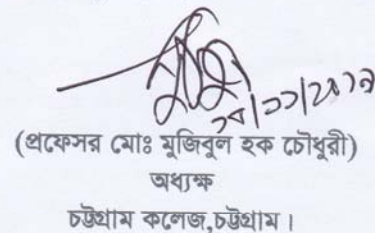 (প্রফেসর মোঃ মুজিবুল হক চৌধুরী)
অধ্যক্ষ
চট্টগ্রাম কলেজ,চট্টগ্রাম।